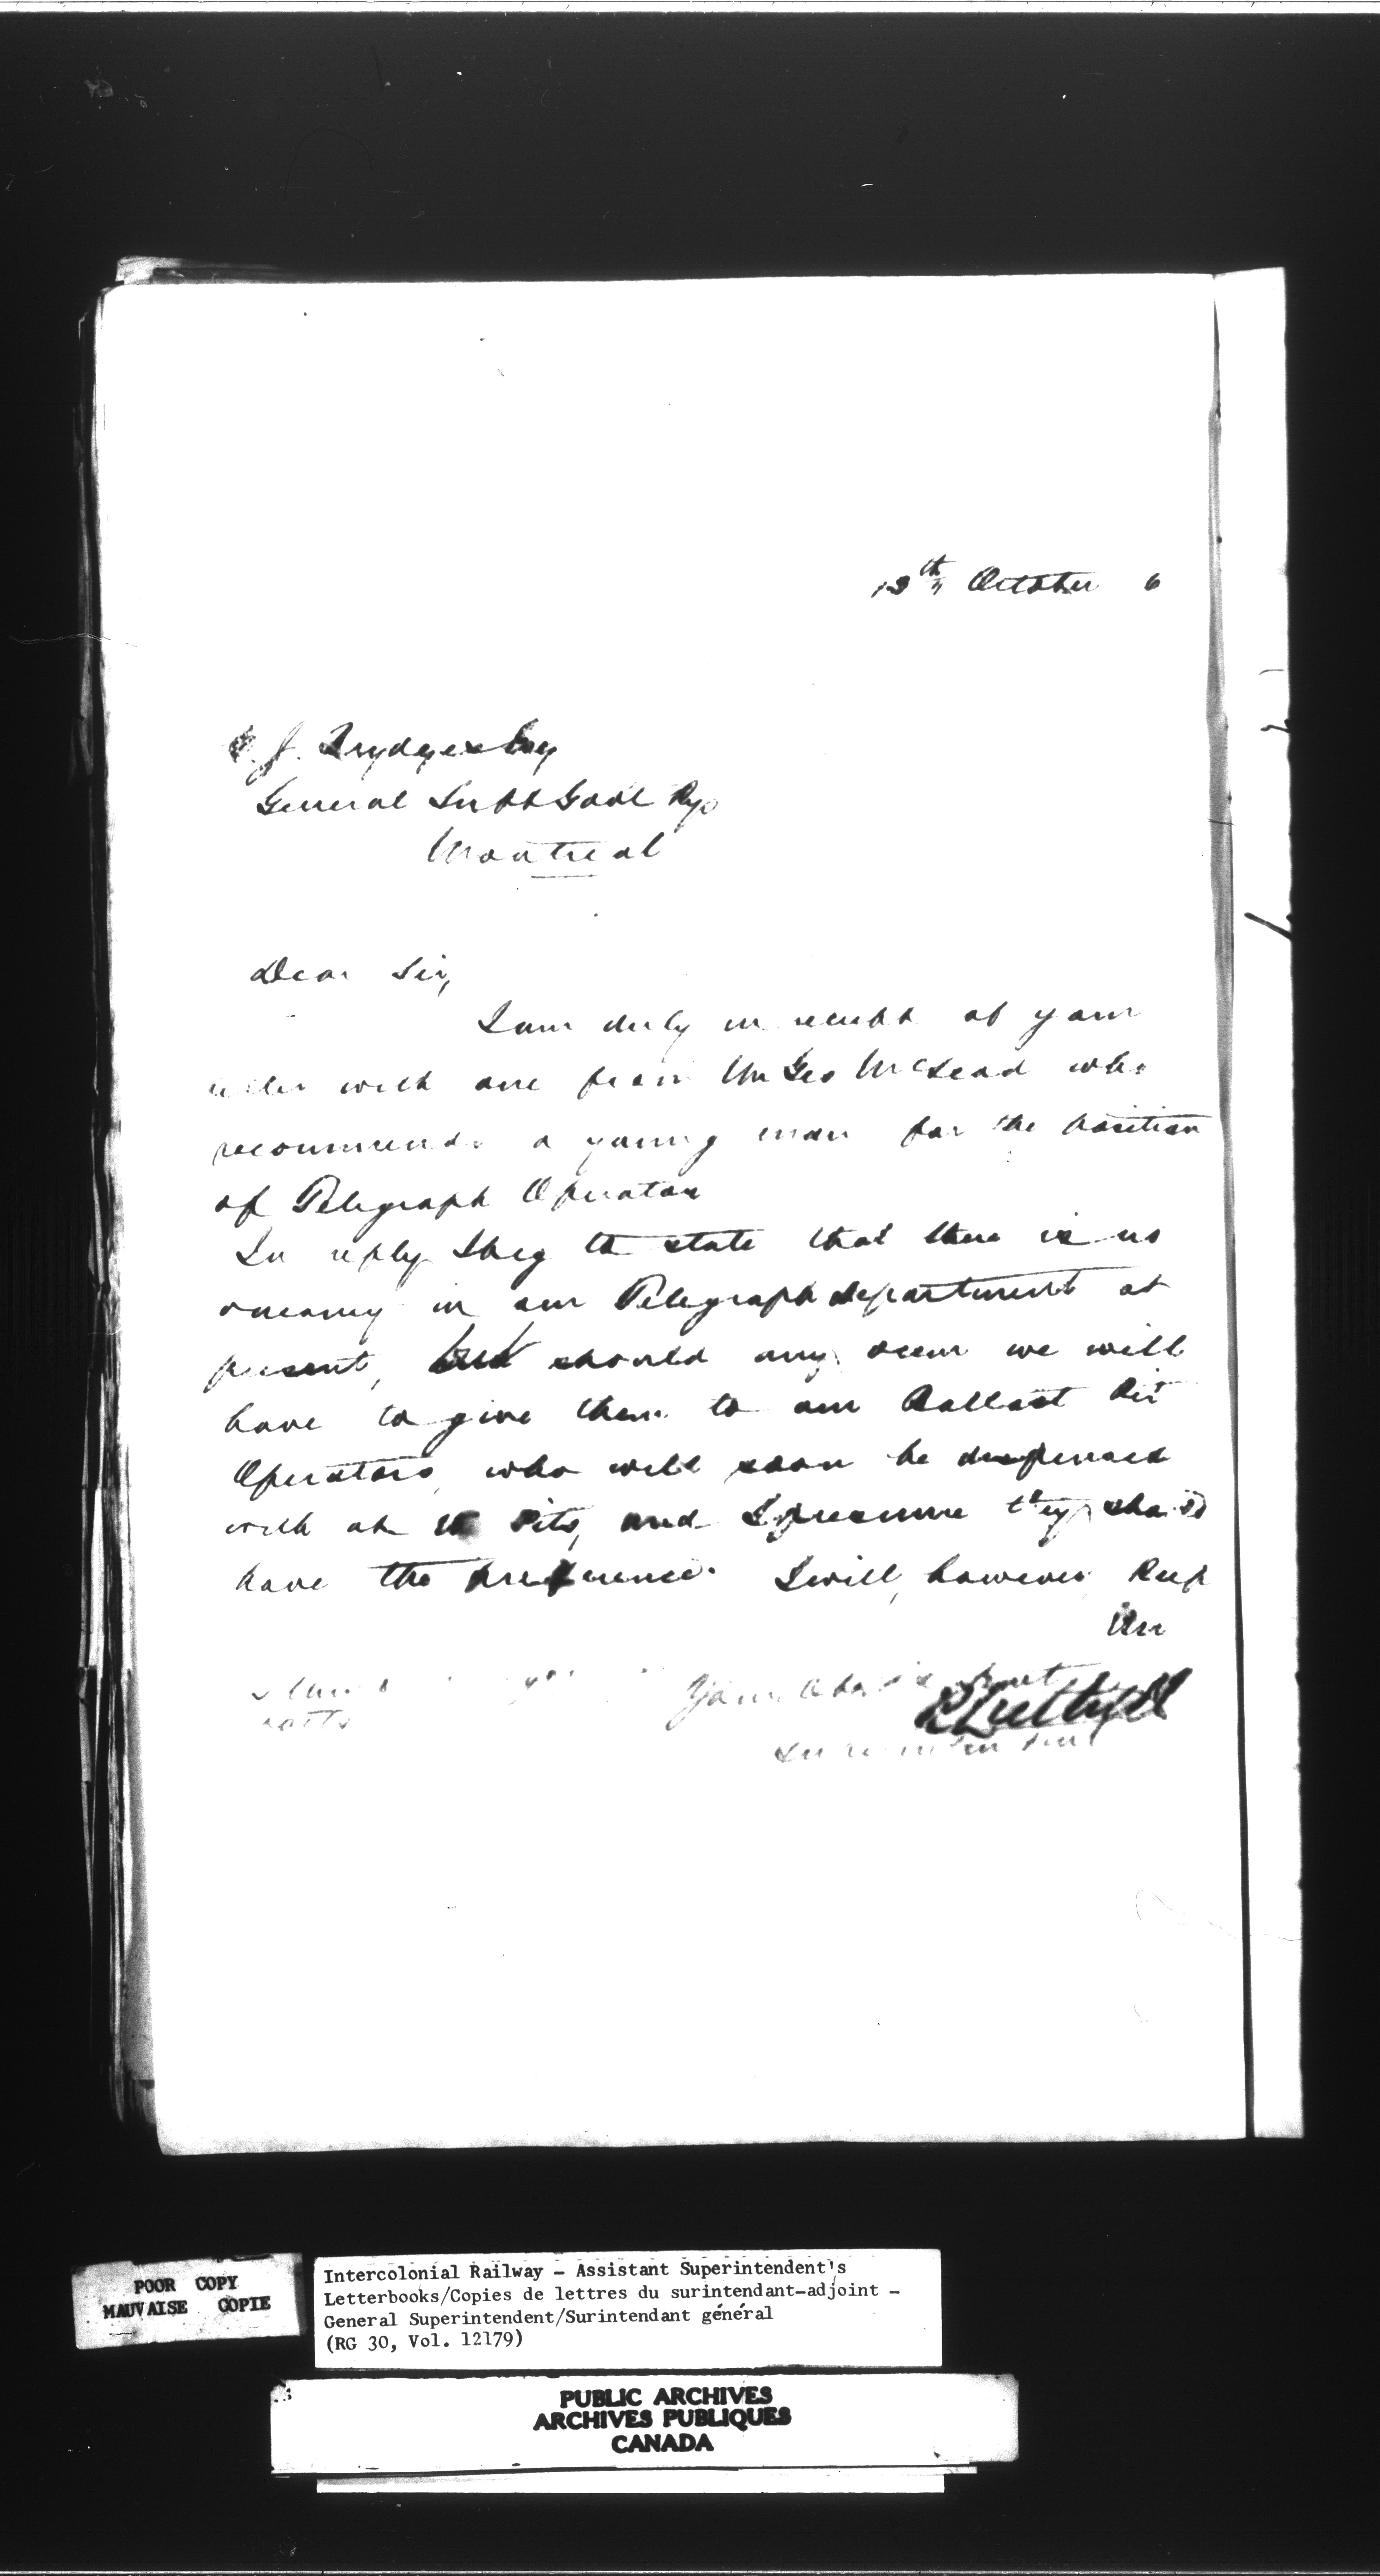 13th October 6
C. J. Brydges Esq
General Supt Govt Rys
Montreal
Dear Sir,
I am duly in receipt of your
letter with one from Mr Geo McLeod who
recommends a young man for the position
of Telegraph Operator
In reply I beg to state that there is no
vacancy in our Telegraph department at
present, but should any occur we will
have to give them to our Ballast Pit
Operators, who will soon be dispensed
with at Pits, and I presume they should
have the preference. I will, however, keep
Mr
Your Obedient Servt
R Luttrell
Superintendent
POOR COPY
MAUVAISE COPIE
Intercolonial Railway - Assistant Superintendent's
Letterbooks/Copies de lettres du surintendant-adjoint -
General Superintendent/Surintendant général
(RG 30, Vol. 12179)
PUBLIC ARCHIVES
ARCHIVES PUBLIQUES
CANADA